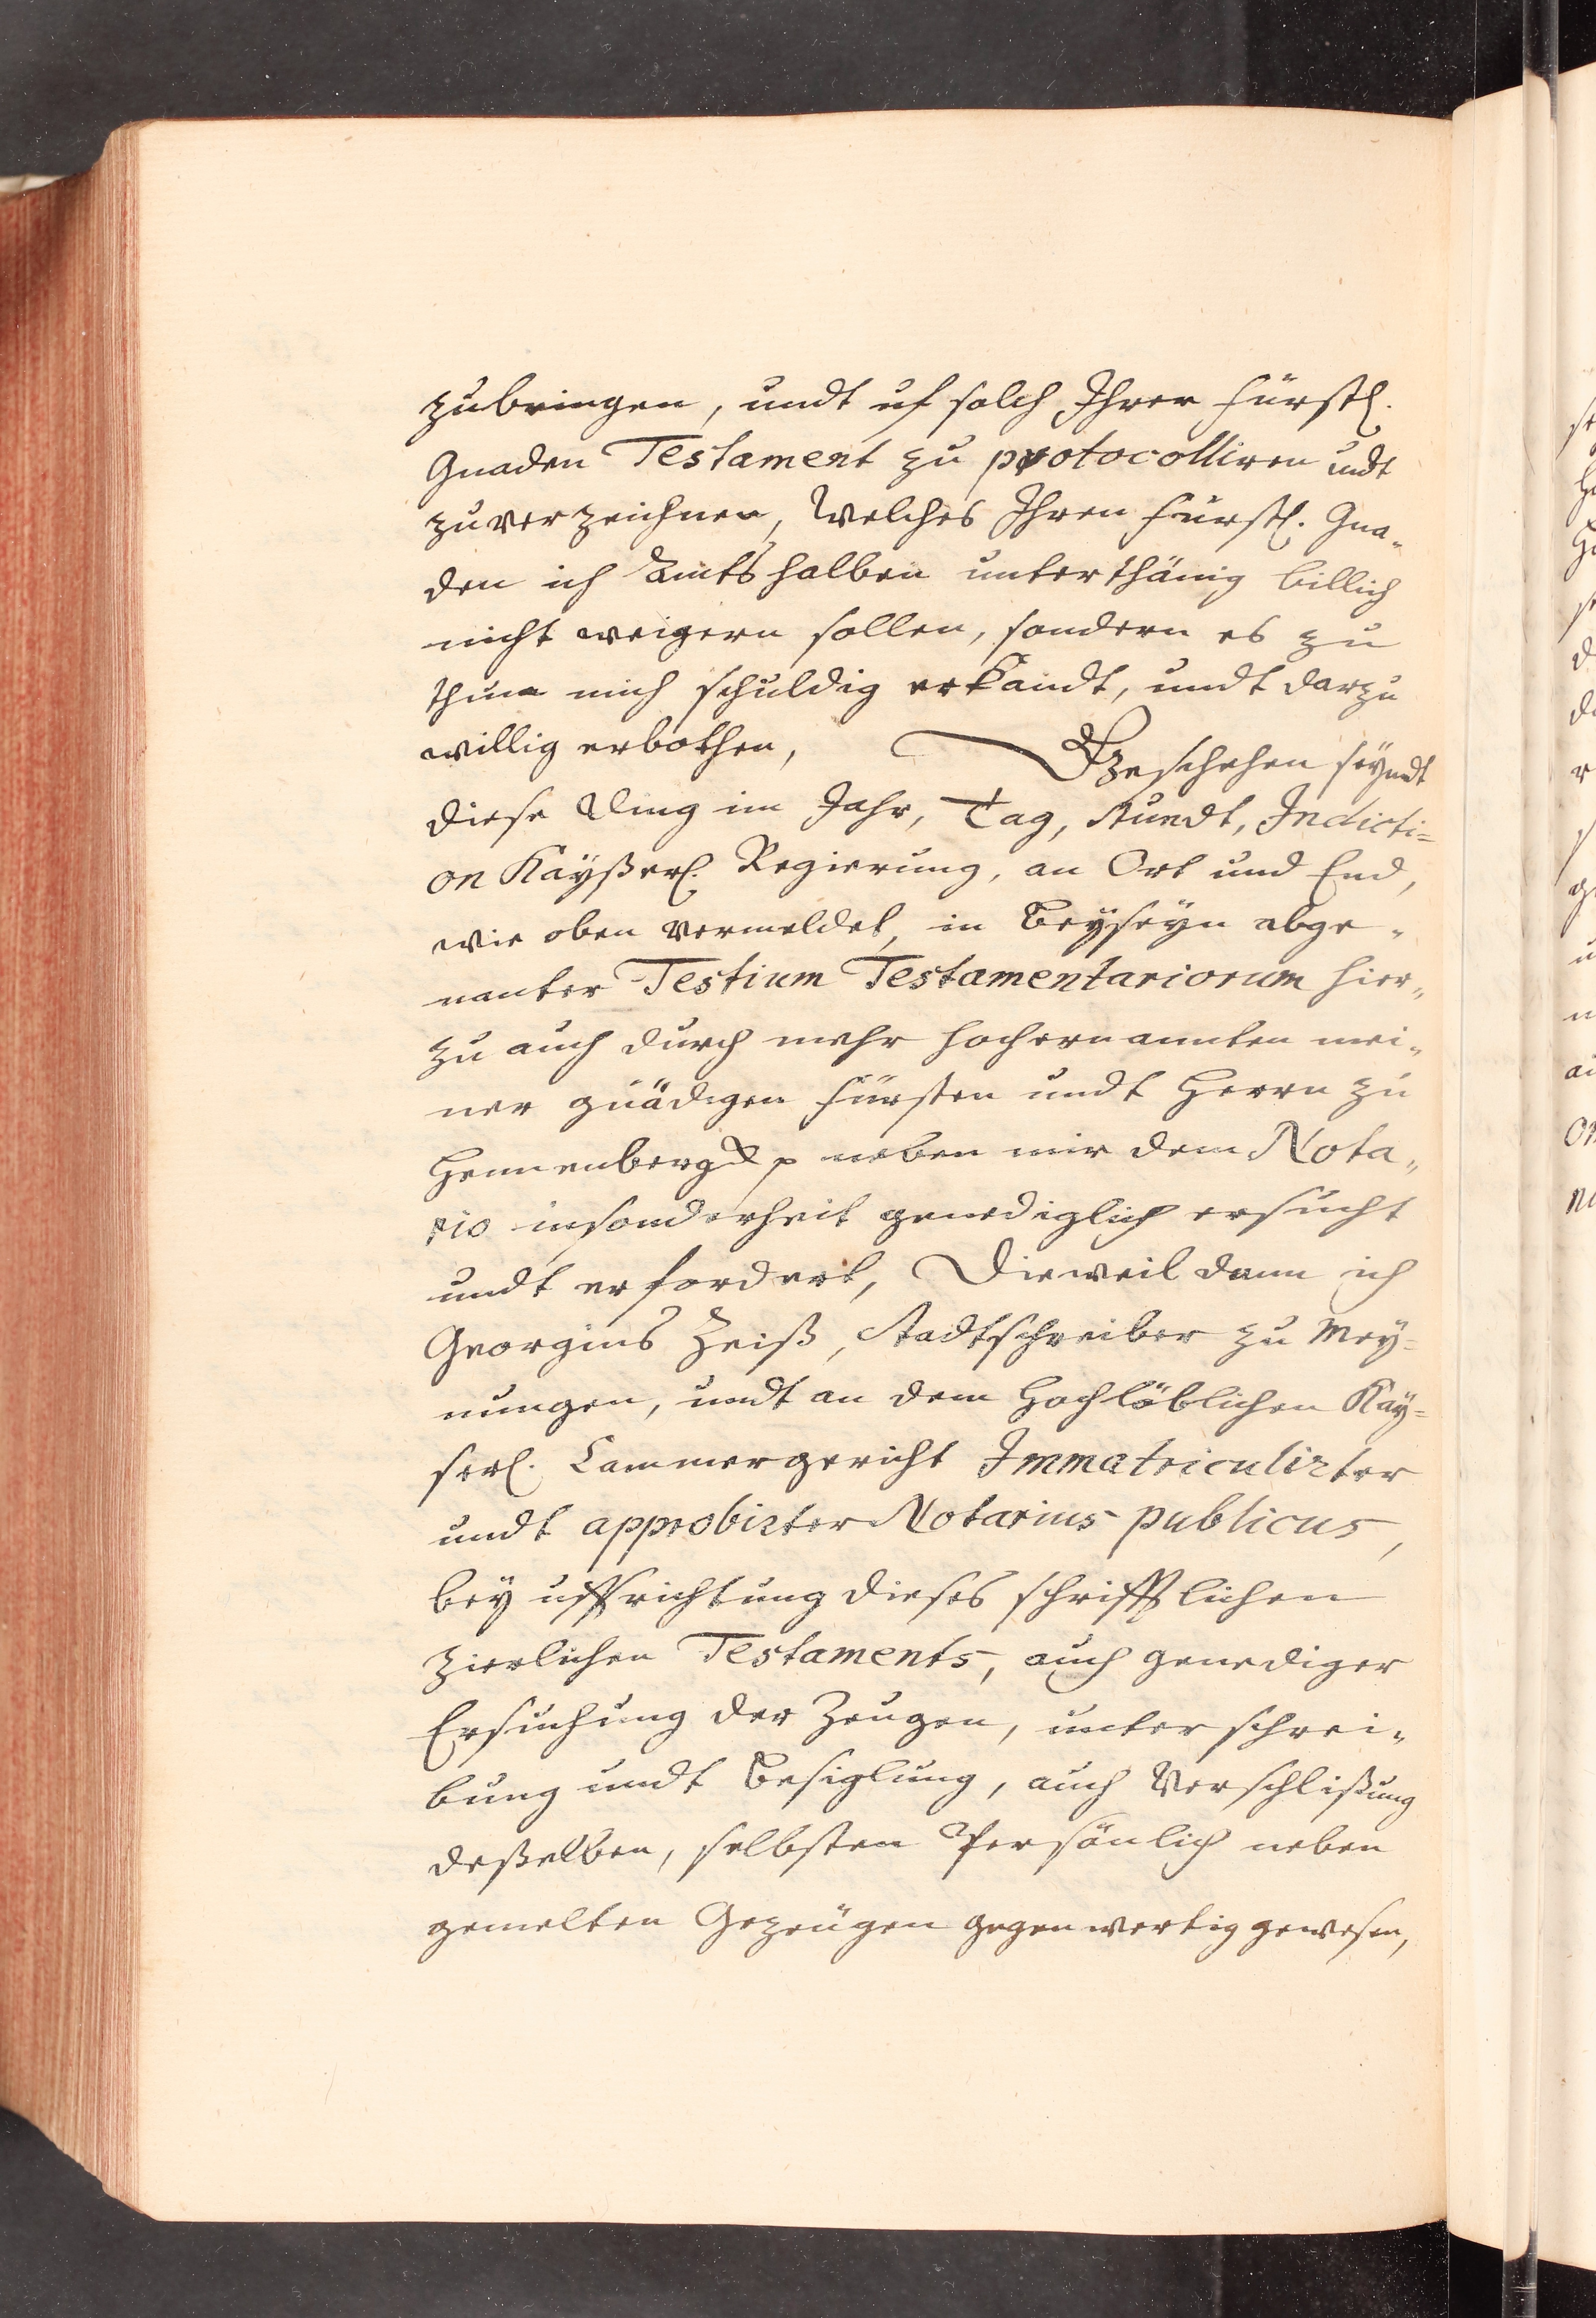 zubringen, undt uf solch Ihrer Fürstl.
Gnaden Testament zu protocolliren undt
zuverzeichnen, Welches Ihren Fürstl. Gna„
den ich Ambts halben unterthänig billich
nicht weigern sollen, sondern es zu
thun mich schuldig erkandt, undt darzu
willig erbothen, Geschehen seyndt
diese Ding im Jahr, Tag, Stundt, Indicti=
on Kayßerl. Regierung, an Ort und End,
wie oben vermeldet, in Beyseyn obge„
nanter Testium Testamentariorum hier„
zu auch durch mehr hochernannten mei„
ner gnädigen Fürsten undt Herrn zu
Hennenberg p neben mir dem Nota„
rio insonderheit genediglich ersucht
undt erfordert, Dieweil dann ich
Georgius Zeiß, Stadtschreiber zu Mey=
nungen, undt an dem Hochlöblichen Kay=
serl. Cammergericht Immatriculirter
undt approbirter Notarius publicus,
bey uffrichtung dieses schrifftlichen
zierlichen Testaments, auch genediger
Ersuchung der Zeugen, unterschrei„
bung undt Besiglung, auch Verschlißung
deßelben, selbsten Persönlich neben
gemelten Gezeugen gegenwertig gewesen,